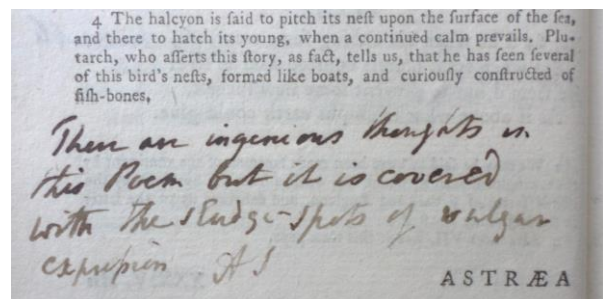 4 The halcyon is ſaid to pitch its neſt upon the ſurface of the ſea,
and there to hatch its young, when a continued calm prevails. Plu-
tarch, who aſſerts this ſtory, as fact, tells us, that he has ſeen ſeveral
of this bird's neſts, formed like boats, and curiouſly conſtructed of
fiſh-bones.
There are ingenious thoughts in
this Poem but it is covered
with the sludge-spots of vulgar
expression AS
ASTRÆA